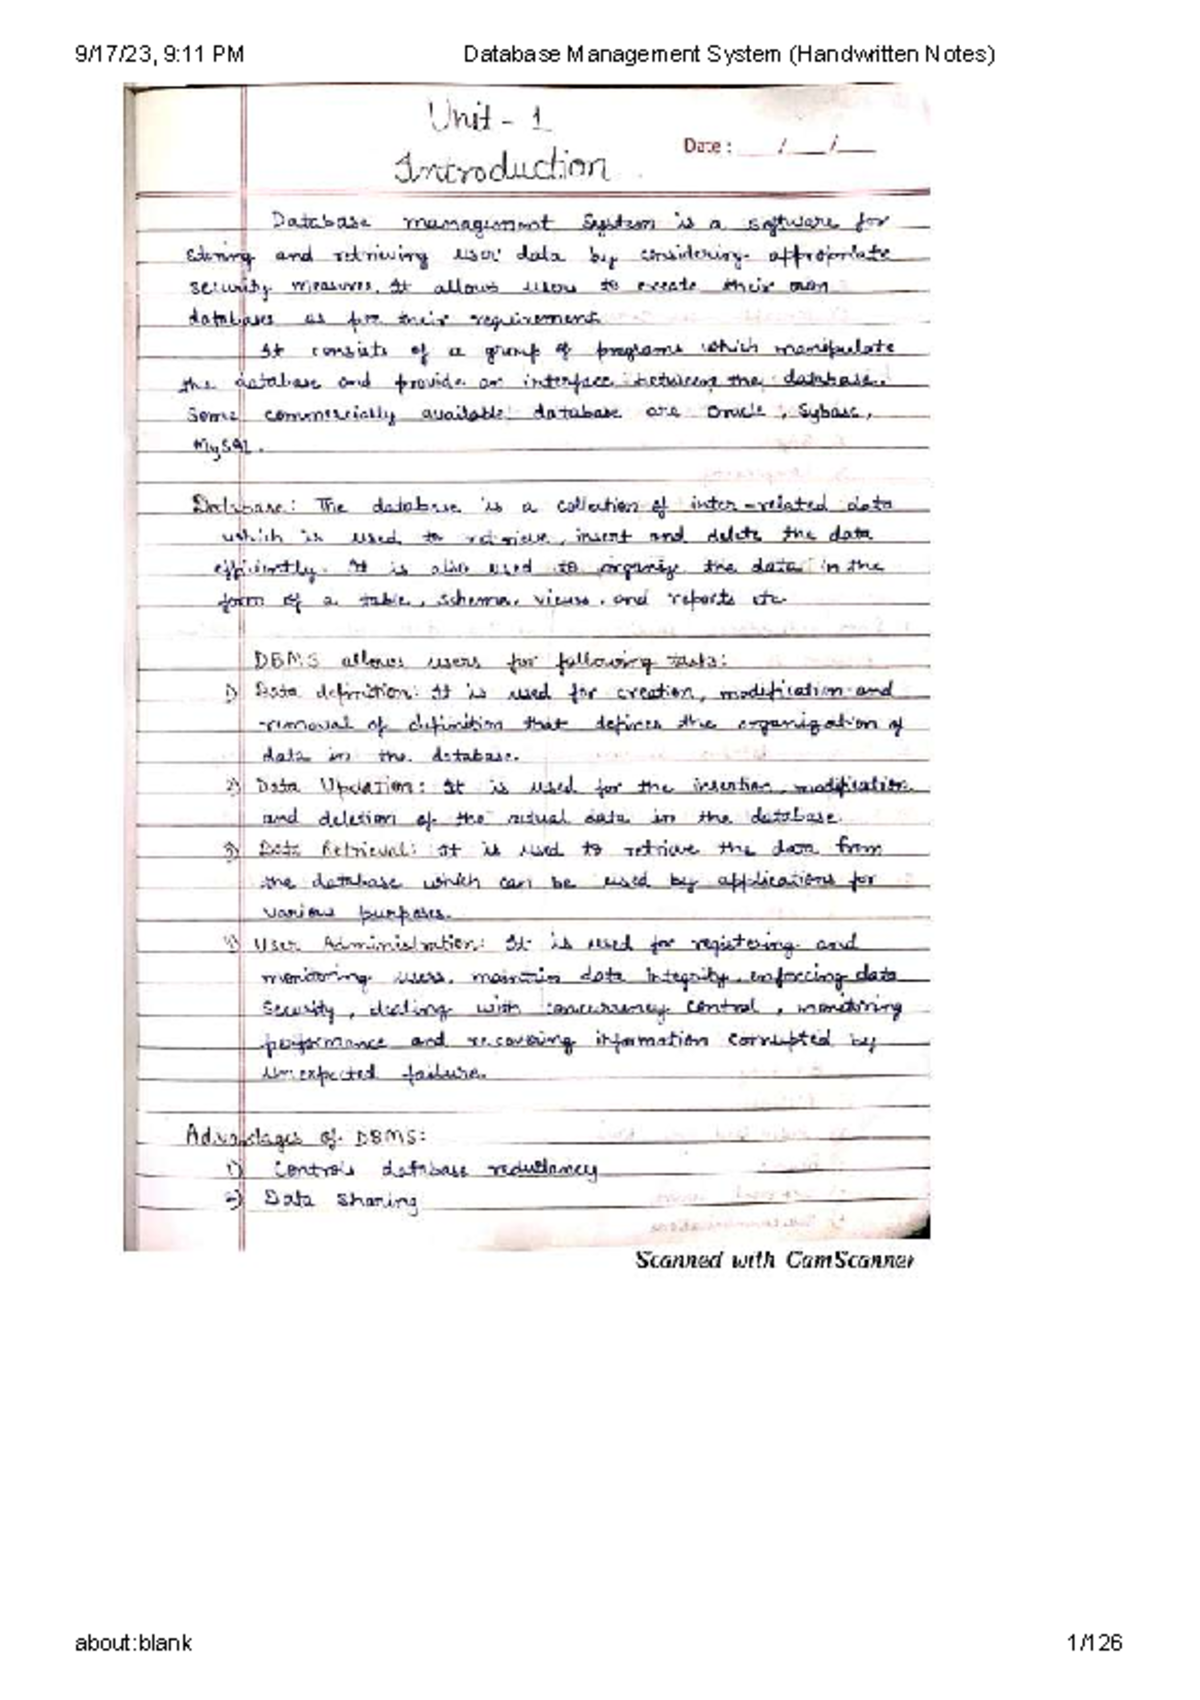 9/17/23, 9:11 PM Database Management System (Handwritten Notes)
Unit - 1
Date : ___/___/___
Introduction
Database management System is a software for
storing and retrieving user data by considering appropriate
security measures. It allows users to create their own
databases as per their requirement.
It consists of a group of programs which manipulate
the database and provide an interface between the database.
Some commercially available database are Oracle, Sybase,
MySQL.
Database: The database is a collection of inter-related data
which is used to retrieve, insert and delete the data
efficiently. It is also used to organize the data in the
form of a table, schema, views, and reports etc.
DBMS allows users for following tasks:
1) Data definition: It is used for creation, modification and
removal of definition that defines the organization of
data in the database.
2) Data Updation: It is used for the insertion, modification
and deletion of the actual data in the database.
3) Data Retrieval: It is used to retrieve the data from
the database which can be used by applications for
various purposes.
4) User Administration: It is used for registering and
monitoring users, maintain data integrity, enforcing data
Security, dealing with concurrency control, monitoring
performance and recovering information corrupted by
unexpected failure.
Advantages of DBMS:
1) Controls database redundancy
2) Data Sharing
Scanned with CamScanner
about:blank 1/126